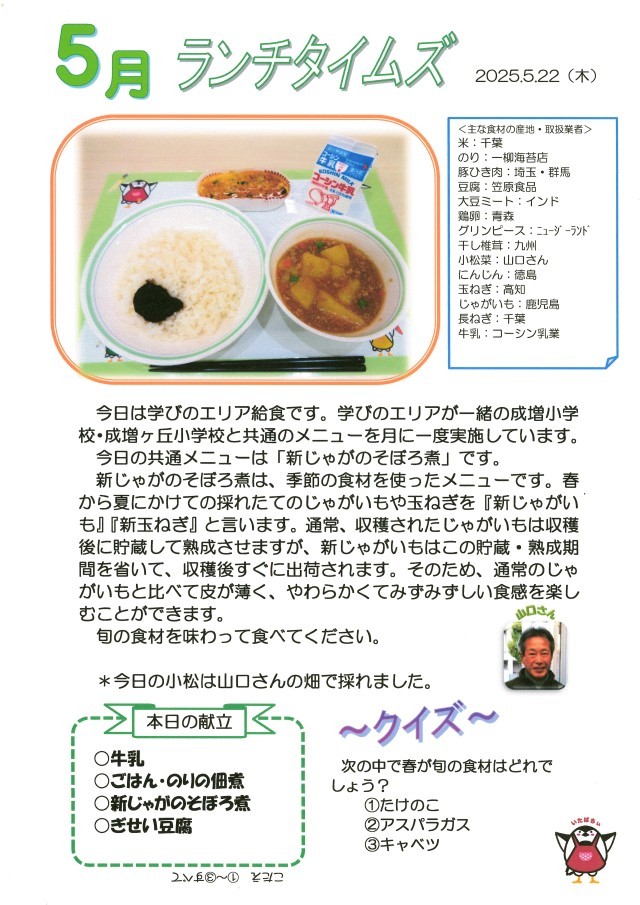 5月 ランチタイムズ 2025.5.22（木）
＜主な食材の産地・取扱業者＞
米：千葉
のり：一柳海苔店
豚ひき肉：埼玉・群馬
豆腐：笠原食品
大豆ミート：インド
鶏卵：青森
グリンピース：ﾆｭｰｼﾞｰﾗﾝﾄﾞ
干し椎茸：九州
小松菜：山口さん
にんじん：徳島
玉ねぎ：高知
じゃがいも：鹿児島
長ねぎ：千葉
牛乳：コーシン乳業
牛乳
KOSHIN MILK
コーシン牛乳
今日は学びのエリア給食です。学びのエリアが一緒の成増小学
校・成増ヶ丘小学校と共通のメニューを月に一度実施しています。
今日の共通メニューは「新じゃがのそぼろ煮」です。
新じゃがのそぼろ煮は、季節の食材を使ったメニューです。春
から夏にかけての採れたてのじゃがいもや玉ねぎを『新じゃがい
も』『新玉ねぎ』と言います。通常、収穫されたじゃがいもは収穫
後に貯蔵して熟成させますが、新じゃがいもはこの貯蔵・熟成期
間を省いて、収穫後すぐに出荷されます。そのため、通常のじゃ
がいもと比べて皮が薄く、やわらかくてみずみずしい食感を楽し
むことができます。
旬の食材を味わって食べてください。
山口さん
＊今日の小松は山口さんの畑で採れました。
本日の献立
○牛乳
○ごはん・のりの佃煮
○新じゃがのそぼろ煮
○ぎせい豆腐
～クイズ～
次の中で春が旬の食材はどれで
しょう？
①たけのこ
②アスパラガス
③キャベツ
いたばちぃ
こたえ ①～③すべて